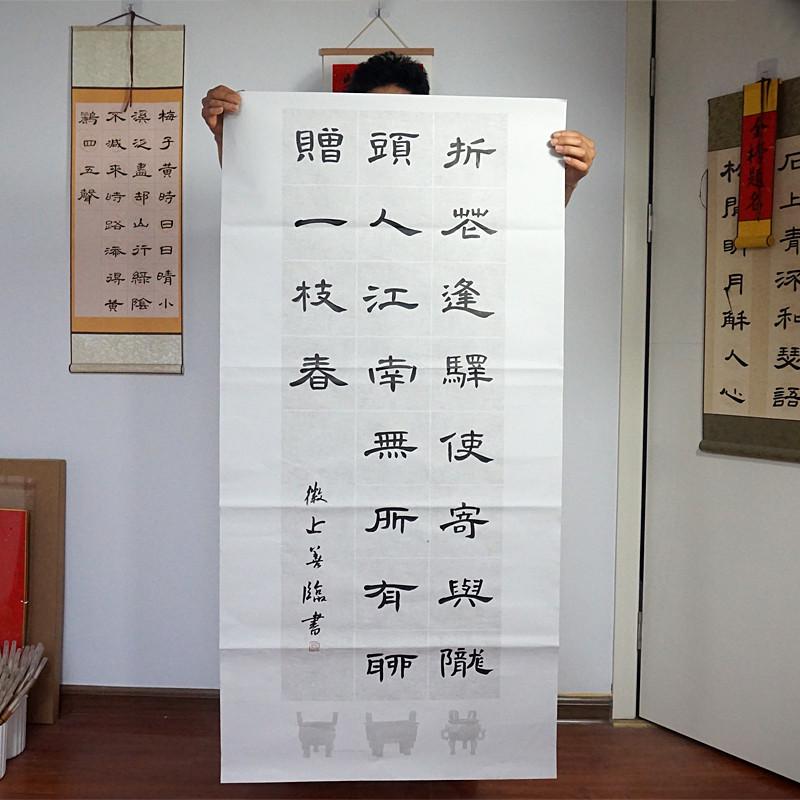 折花逢驛使寄與隴
頭人江南無所有聊
贈一枝春
徽上善臨書
梅子黃時日日晴小
溪泛盡却山行綠陰
不減來時路添得黃
鸝四五聲
金榜題名
石上青
松間明月解人心